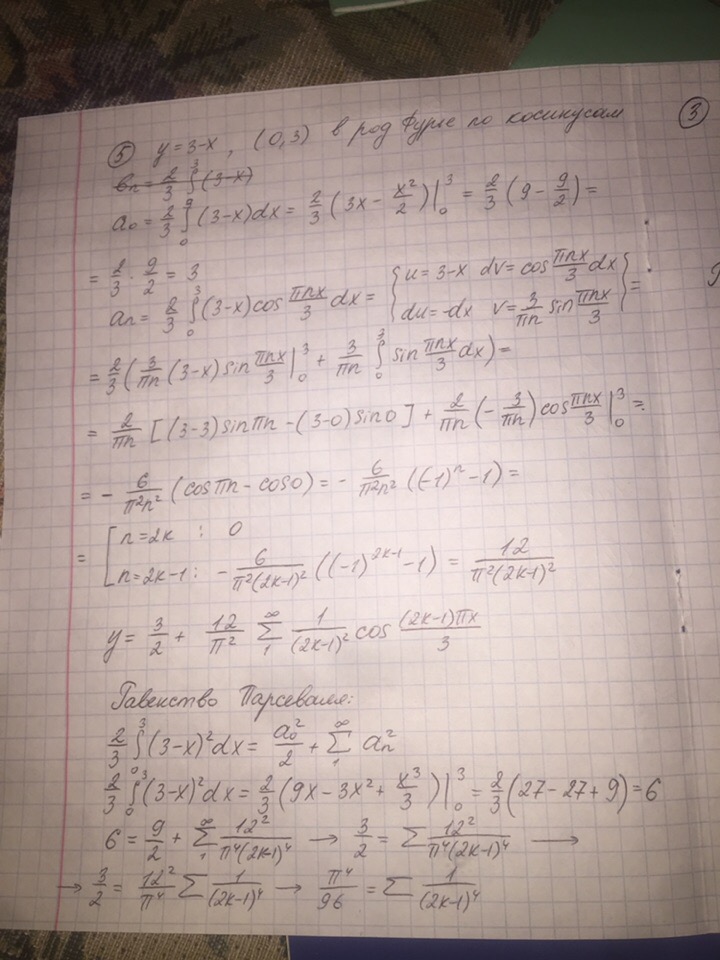 ⑤ y = 3-x , (0,3) в ряд Фурье по косинусам ③
bn = 2/3 ∫₀³ (3-x)
a₀ = 2/3 ∫₀ (3-x)dx = 2/3 (3x - x²/2)|₀³ = 2/3 (9 - 9/2) =
= 2/3 · 9/2 = 3
an = 2/3 ∫₀³ (3-x) cos πnx/3 dx = { u = 3-x dv = cos πnx/3 dx
du = -dx v = 3/πn sin πnx/3 } =
= 2/3 ( 3/πn (3-x) sin πnx/3 |₀³ + 3/πn ∫₀³ sin πnx/3 dx ) =
= 2/πn [ (3-3) sin πn - (3-0) sin 0 ] + 2/πn (- 3/πn) cos πnx/3 |₀³ =
= - 6/π²n² (cos πn - cos 0) = - 6/π²n² ((-1)ⁿ - 1) =
= [ n = 2k : 0
n = 2k-1 : - 6/π²(2k-1)² ((-1)²ᵏ⁻¹ - 1) = 12/π²(2k-1)²
y = 3/2 + 12/π² ∑₁^∞ 1/(2k-1)² cos (2k-1)πx/3
Равенство Парсеваля:
2/3 ∫₀³ (3-x)² dx = a₀²/2 + ∑₁^∞ an²
2/3 ∫₀³ (3-x)² dx = 2/3 (9x - 3x² + x³/3)|₀³ = 2/3 (27 - 27 + 9) = 6
6 = 9/2 + ∑₁^∞ 12²/π⁴(2k-1)⁴ → 3/2 = ∑ 12²/π⁴(2k-1)⁴ →
→ 3/2 = 12²/π⁴ ∑ 1/(2k-1)⁴ → π⁴/96 = ∑ 1/(2k-1)⁴